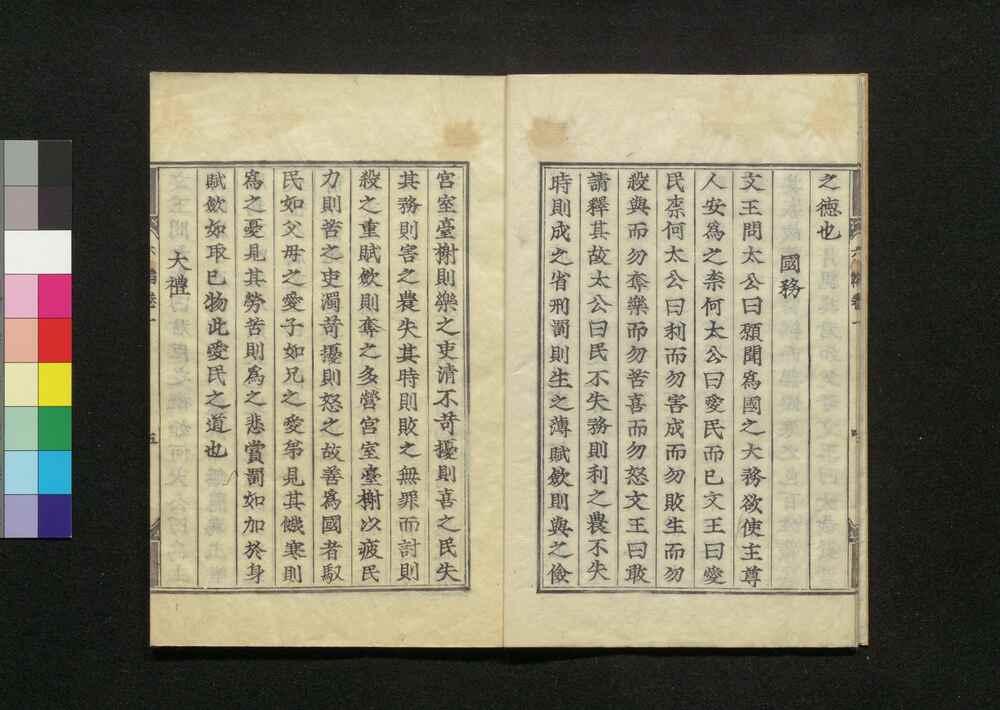 之德也
國務
文王問太公曰願聞爲國之大務欲使主尊
人安爲之柰何太公曰愛民而已文王曰愛
民柰何太公曰利而勿害成而勿敗生而勿
殺與而勿奪樂而勿苦喜而勿怒文王曰敢
請釋其故太公曰民不失務則利之農不失
時則成之省刑罰則生之薄賦歛則與之儉
宮室臺榭則樂之吏清不苛擾則喜之民失
其務則害之農失其時則敗之無罪而討則
殺之重賦歛則奪之多營宮室臺榭以疲民
力則苦之吏濁苛擾則怒之故善爲國者馭
民如父母之愛子如兄之愛弟見其饑寒則
爲之憂見其勞苦則爲之悲賞罰如加於身
賦歛如取已物此愛民之道也
大禮
五